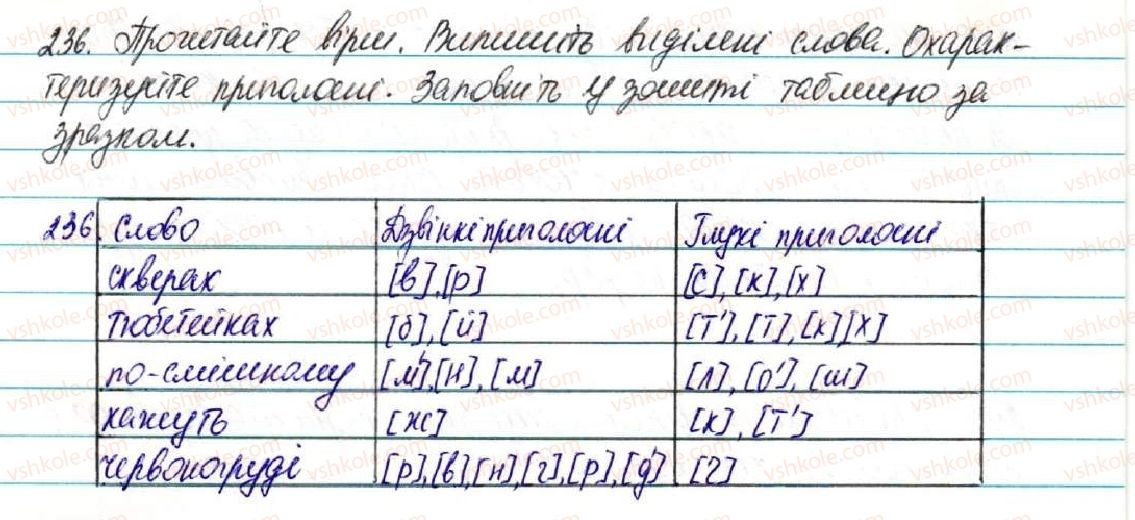 236. Прочитайте вірш. Випишіть виділені слова. Охарак-
теризуйте приголосні. Заповніть у зошиті таблицю за
зразком.
236. Слово Дзвінкі приголосні Глухі приголосні
скверах [в],[р] [с],[к],[х]
тюбетейках [б],[й] [т'],[т],[к][х]
по-смішному [м'],[н],[м] [п],[с'],[ш]
кажуть [ж] [к],[т']
червоногруді [р],[в],[н],[г],[р],[д'] [ч]
vshkole.com